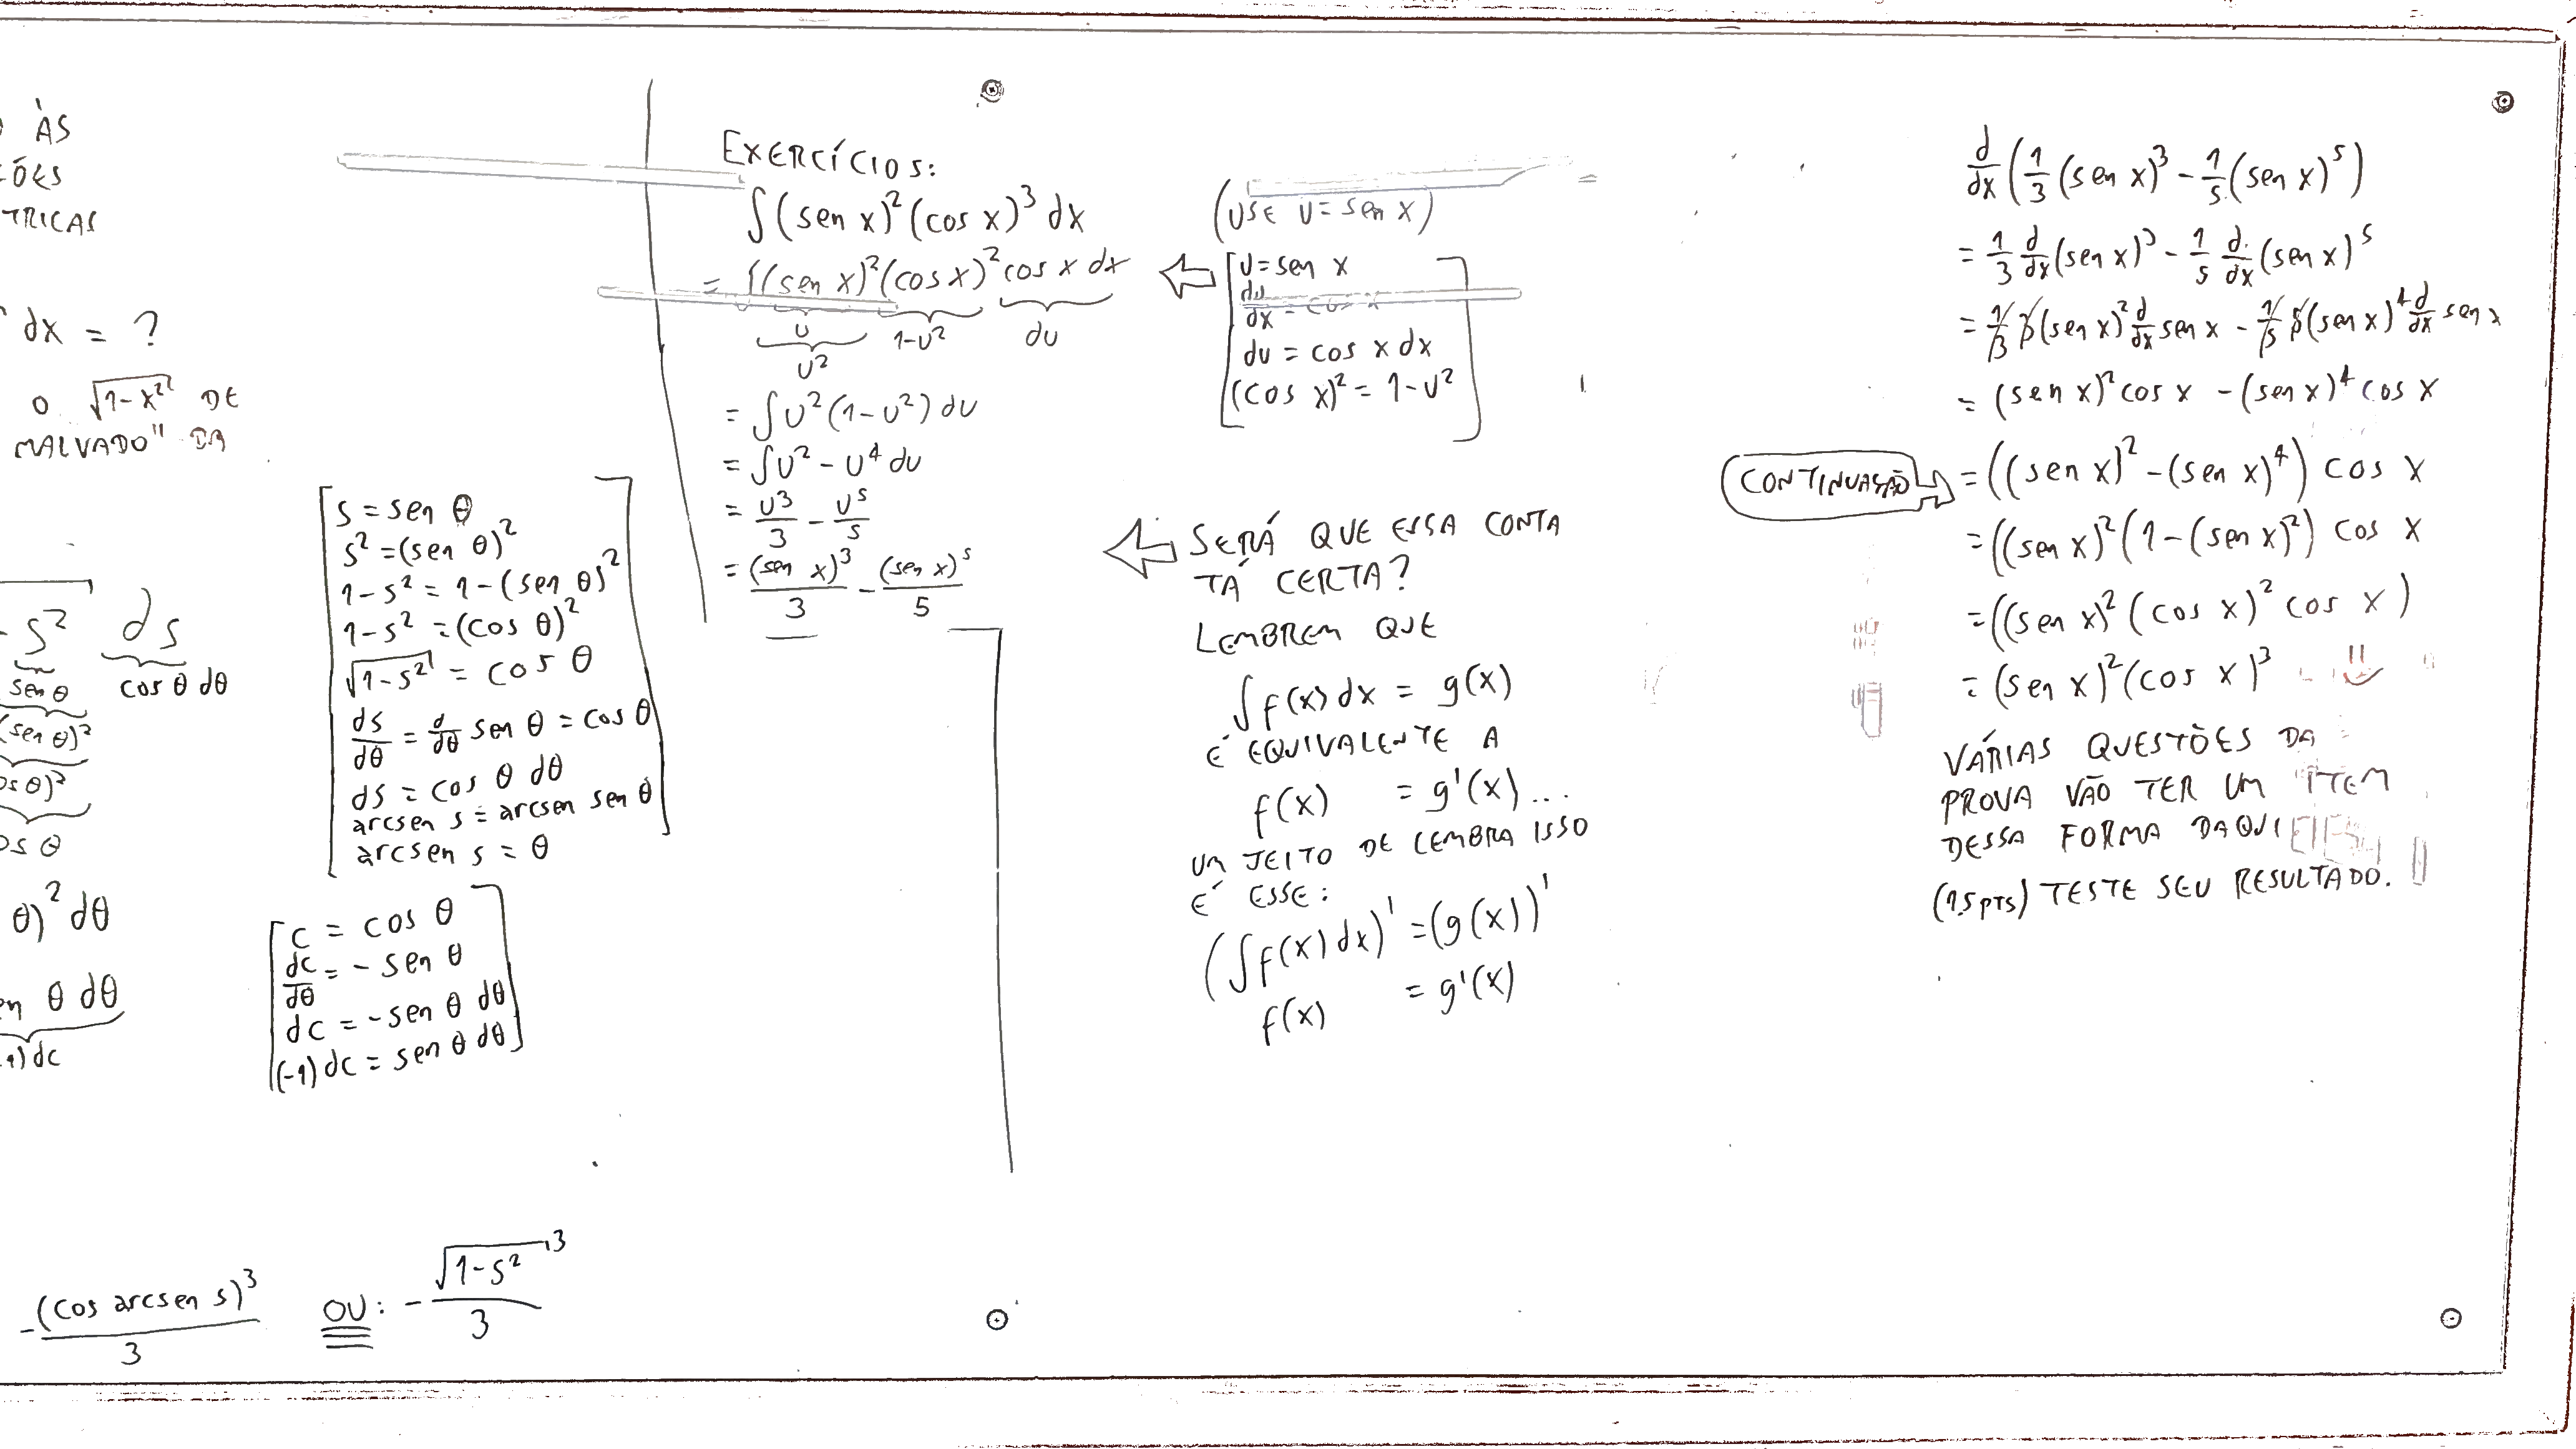 ÀS
ÕES
TRICAS
dx = ?
O √1-x² DE
MALVADO" DA
s² ds
sen θ cos θ dθ
(sen θ)²
θ)²
θ
θ)² dθ
θ dθ
dc
-(cos arcsen s)³/3 OU: -√1-s²³/3
[s = sen θ
s² = (sen θ)²
1-s² = 1-(sen θ)²
1-s² = (cos θ)²
√1-s² = cos θ
ds/dθ = d/dθ sen θ = cos θ
ds = cos θ dθ
arcsen s = arcsen sen θ
arcsen s = θ]
[c = cos θ
dc/dθ = - sen θ
dc = -sen θ dθ
(-1)dc = sen θ dθ]
EXERCÍCIOS:
∫(sen x)²(cos x)³ dx (USE U = sen x)
= ∫(sen x)²(cos x)² cos x dx ⇐
u 1-u² du
u²
= ∫u²(1-u²) du
= ∫u² - u⁴ du
= u³/3 - u⁵/5
= (sen x)³/3 - (sen x)⁵/5
[u = sen x
du/dx = cos x
du = cos x dx
(cos x)² = 1-u²]
⇐ SERÁ QUE ESSA CONTA
TÁ CERTA?
LEMBREM QUE
∫f(x) dx = g(x)
É EQUIVALENTE A
f(x) = g'(x)...
UM JEITO DE LEMBRA ISSO
É ESSE:
(∫f(x) dx)' = (g(x))'
f(x) = g'(x)
d/dx (1/3 (sen x)³ - 1/5 (sen x)⁵)
= 1/3 d/dx (sen x)³ - 1/5 d/dx (sen x)⁵
= 1/3 3(sen x)² d/dx sen x - 1/5 5(sen x)⁴ d/dx sen x
= (sen x)² cos x - (sen x)⁴ cos x
CONTINUAÇÃO ⇒ = ((sen x)² - (sen x)⁴) cos x
= ((sen x)² (1-(sen x)²) cos x
= ((sen x)² (cos x)² cos x)
= (sen x)² (cos x)³
VÁRIAS QUESTÕES DA
PROVA VÃO TER UM ITEM
DESSA FORMA DAQUI
(1.5 PTS) TESTE SEU RESULTADO.